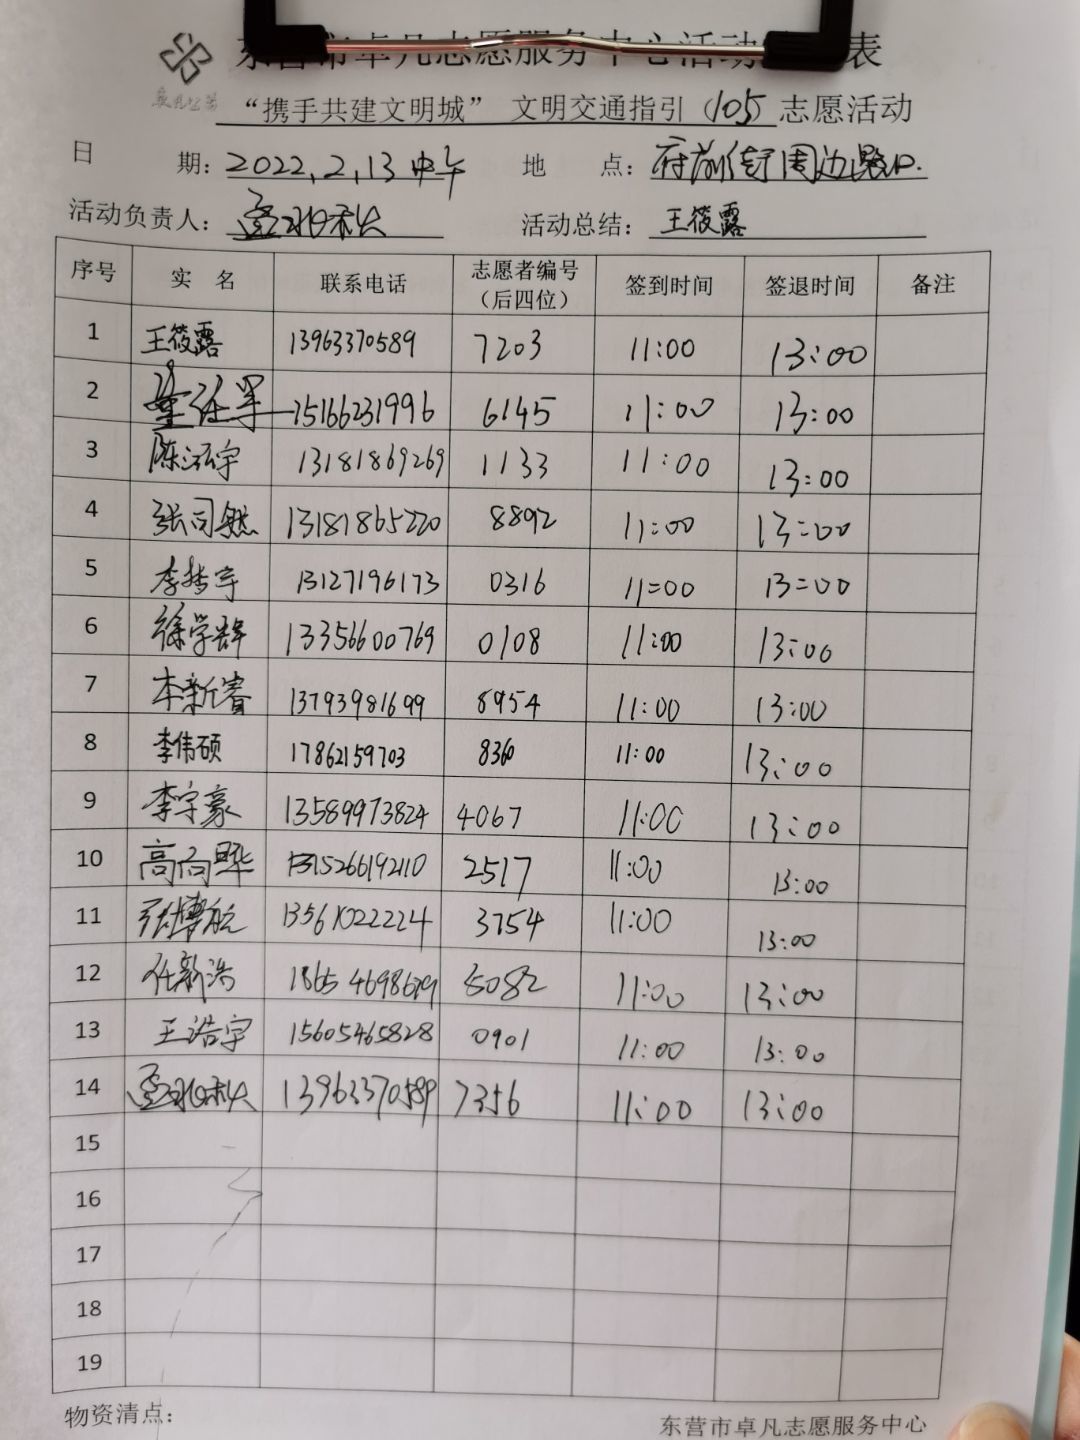 东营市卓凡志愿服务中心活动 表
“携手共建文明城” 文明交通指引（105）志愿活动
日 期：2022.2.13中午 地 点：府前街周边路口.
活动负责人： 活动总结：王筱露
序号 实 名 联系电话 志愿者编号（后四位） 签到时间 签退时间 备注
1 王筱露 13963370589 7203 11:00 13:00
2 15166231996 6145 11:00 13:00
3 陈泓宇 13181869269 1133 11:00 13:00
4 张司 13181865220 8892 11:00 13:00
5 李 宇 13127196173 0316 11=00 13=00
6 徐学辉 13356600769 0108 11:00 13:00
7 新睿 13793981699 8954 11:00 13:00
8 李伟硕 17862159703 8360 11:00 13:00
9 李宇豪 13589973824 4067 11:00 13:00
10 高向晔 2517 11:00 13:00
11 张博航 13561022224 3754 11:00 13:00
12 任新浩 5082 11:00 13:00
13 王浩宇 15605465828 0901 11:00 13:00
14 13963370589 7356 11:00 13:00
15
16
17
18
19
物资清点： 东营市卓凡志愿服务中心